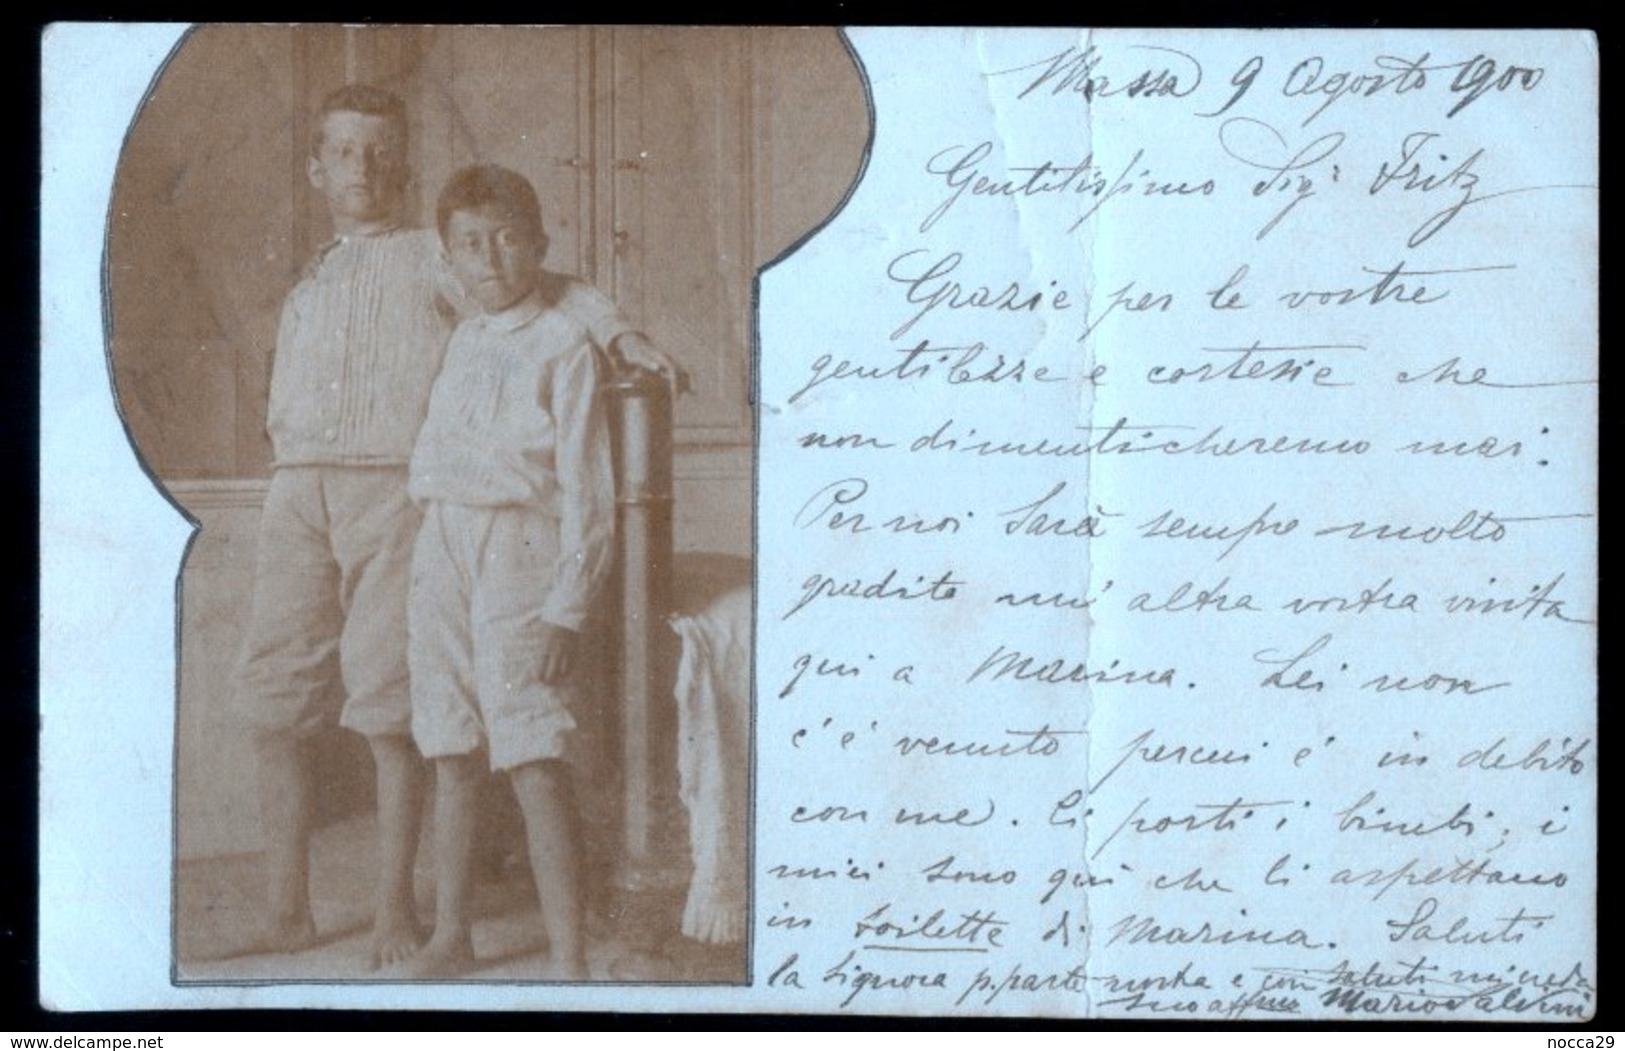 Massa 9 Agosto 1900
Gentilissimo Sigr Fritz
Grazie per le vostre
gentilezze e cortesie che
non dimenticheremo mai.
Per noi sarà sempre molto
gradita un' altra vostra visita
qui a Marina. Lei non
c'è venuto percui é in debito
con me. Ci porti i bimbi, i
miei sono qui che li aspettano
in toilette di Marina. Saluti
la Signora p. parte nostra e con saluti mi creda
suo affmo Mario Salvini
delcampe.net
nocca29